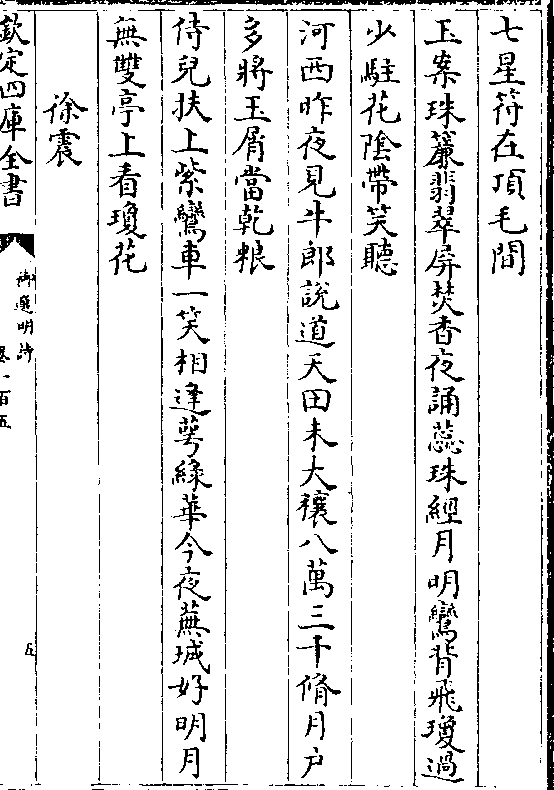 七星符在頂毛間
玉案珠簾翡翠屏焚香夜誦蕊珠經月明鸞背飛瓊過
少駐花陰帶笑聽
河西昨夜見牛郎說道天田未大穰八萬三千脩月户
多將玉屑當乾粮
侍兒扶上紫鸞車一笑相逢萼綠華今夜蕪城好明月
無雙亭上看瓊花
徐震
欽定四庫全書
御選明詩
卷一百五
五